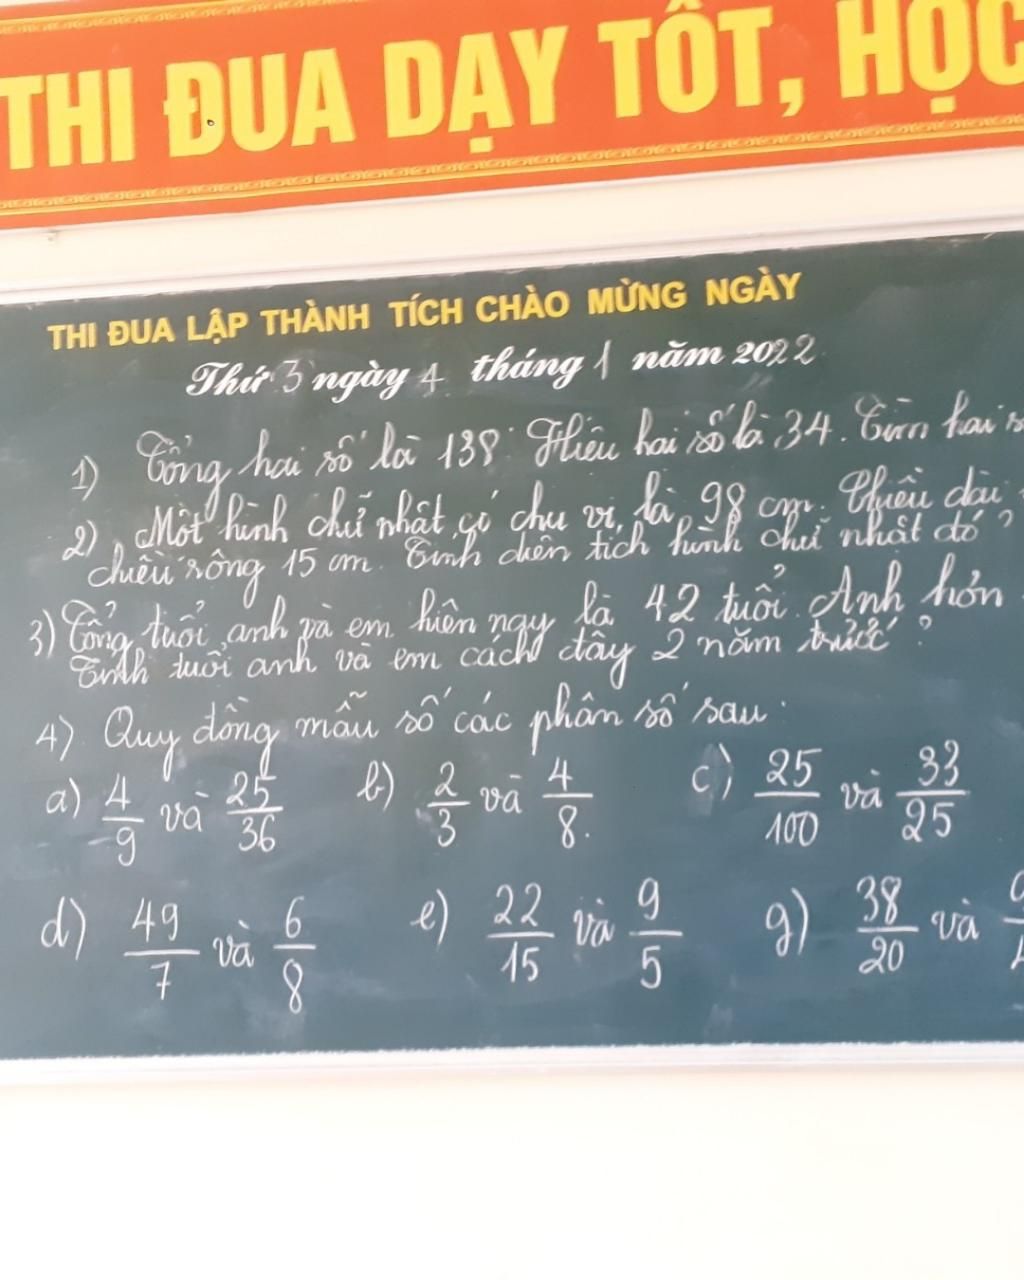 THI ĐUA DẠY TỐT, HỌC
THI ĐUA LẬP THÀNH TÍCH CHÀO MỪNG NGÀY
Thứ 3 ngày 4 tháng 1 năm 2022
1) Tổng hai số là 138. Hiệu hai số là 34. Tìm hai
2) Một hình chữ nhật có chu vi là 98 cm. Chiều dài
chiều rộng 15 cm. Tính diện tích hình chữ nhật đó?
3) Tổng tuổi anh và em hiện nay là 42 tuổi. Anh hơn
Tính tuổi anh và em cách đây 2 năm trước?
4) Quy đồng mẫu số các phân số sau:
a) 4/9 và 25/36 b) 2/3 và 4/8. c) 25/100 và 33/25
d) 49/7 và 6/8 e) 22/15 và 9/5 g) 38/20 và